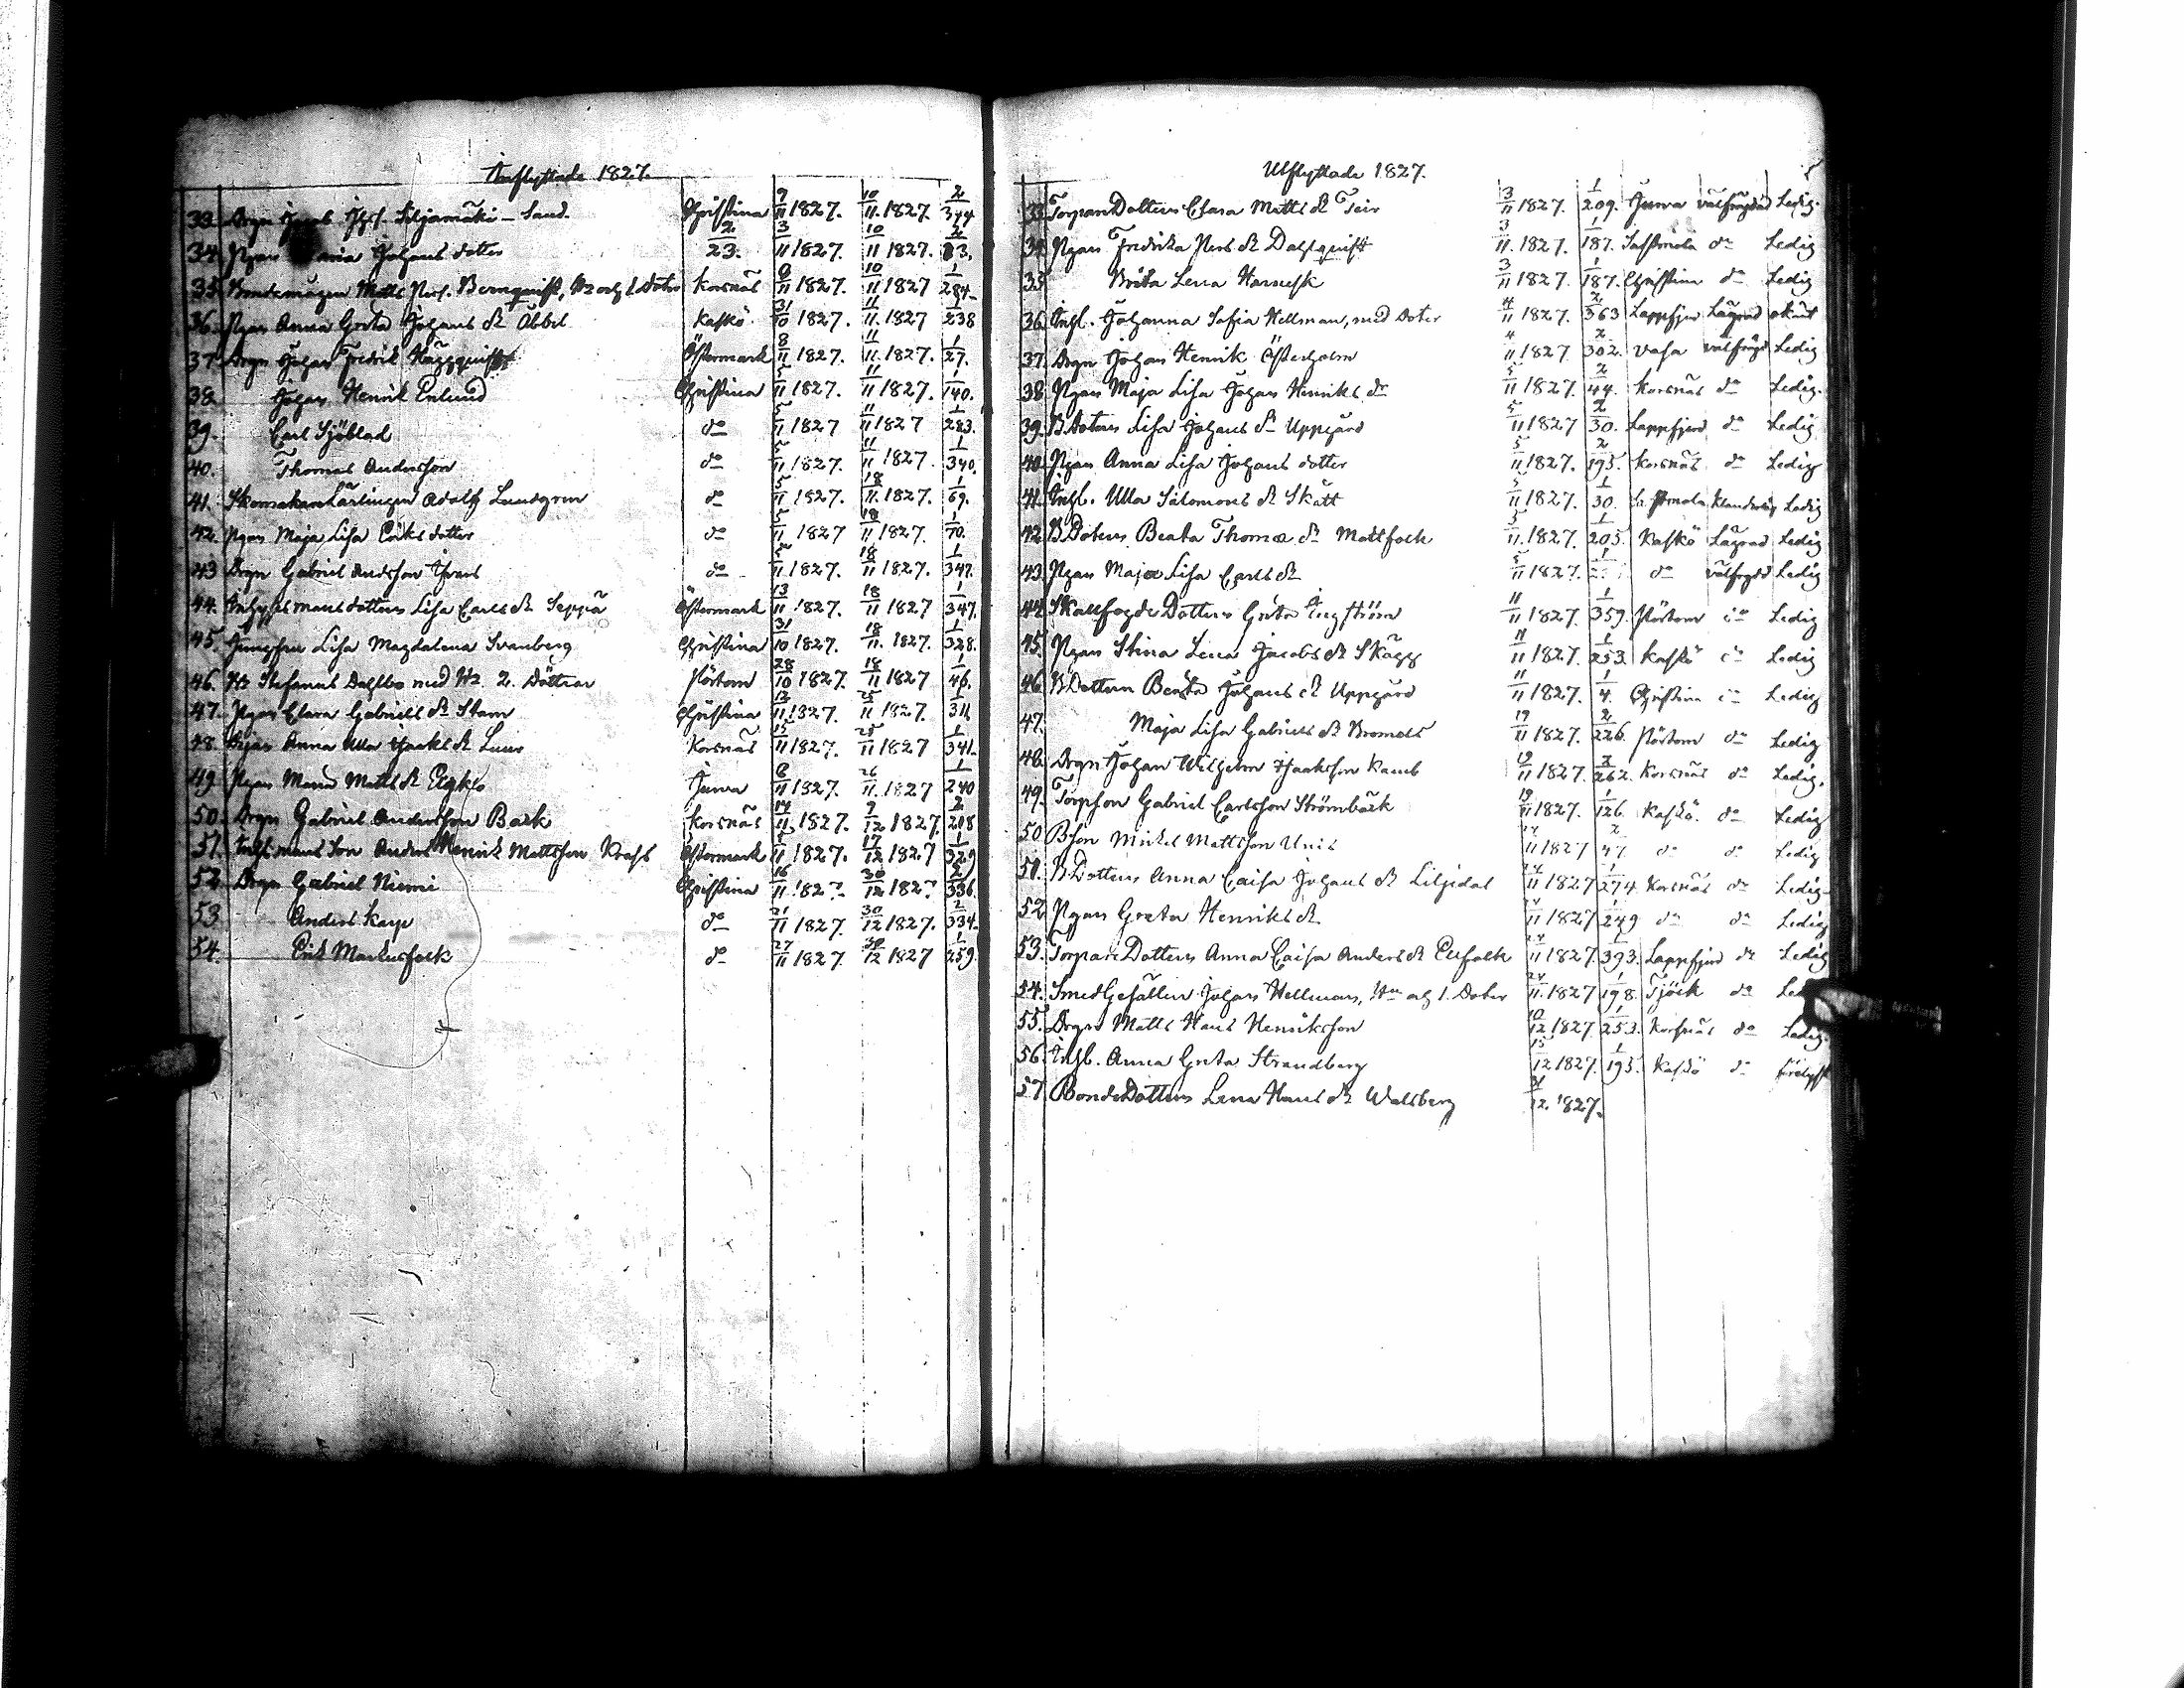 Inflyttade 1827.
33. Drgn Jacob Joh:s. Siljamäki - Sand. Christina 9/11 1827. 10/11. 1827. 2/344
34. Pigan Maria Johans dotter 2/23. 3/11 1827. 10/11 1827. 2/83.
35. Bondemågen Matts Pers. Bernquist, H:u och 1 doter Korsnäs 9/11 1827. 10/11 1827 1/284
36. Pigan Anna Greta Johans dr Abbel Kaskö 31/10 1827. 11/11. 1827 238
37. Drgn Johan Fredrik Häggquist Östermark 8/11 1827. 11/11. 1827. 1/27.
38. Johan Henrik Enlund Christina 5/11 1827. 11/11 1827. 140.
39. Carl Sjöblad do 5/11 1827 11/11 1827 1/283.
40. Thomas Andersson do 5/11 1827. 11/11 1827. 1/340.
41. Skomakare Lärlingen Adolf Lundgren do 5/11 1827. 18/11. 1827. 1/69.
42. Pigan Maja Lisa Eriks dotter do 5/11 1827 18/11 1827. 1/70.
43 Drgn Gabriel Andsson do 5/11 1827. 18/11 1827. 1/347.
44. Inhyses mans dottren Lisa Carls dr Seppä Östermark 13/11 1827. 18/11 1827 1/347.
45. Jungfru Lisa Magdalena Svanberg Christina 31/10 1827. 18/11. 1827. 1/328.
46. Stefanus Dahlbo med H:u 2. Döttrar Pörtom 28/10 1827. 18/11 1827 1/46.
47. Pigan Clara Gabriels dr Stam Christina 12/11 1827. 25/11 1827. 1/311
48. Pigan Anna Ulla Isaks dr Korsnäs 15/11 1827. 25/11 1827 1/341.
49 Pigan Maria Matts dr Jurva 6/11 1827. 26/11. 1827 1/240
50. Drgn Gabriel Andersson Back Korsnäs 14/11 1827. 9/12 1827. 2/218
51. Inhs mans Son Anders Henrik Mattsson Östermark 5/11 1827. 17/12 1827 1/329
52 Drgn Gabriel Niemi Christina 16/11 1827 30/12 1827 2/336.
53 Anders Karp do 21/11 1827. 30/12 1827. 2/334.
54. Erik Markusfolk do 27/11 1827. 30/12 1827 1/259.
Utflyttade 1827.
33. Torpare Dottren Clara Matts dr Teir 3/11 1827. 1/209. Jurva välfrejdad Ledig.
34. Pigan Fredrika Pers dr Dahlquist 3/11. 1827. 1/187. do Ledig
35 Brita Lena Harnesk 3/11 1827. 1/187. Christina do Ledig
36. Inhs. Johanna Sofia Hellman, med Doter 4/11 1827. 2/363 Lappfjerd Lagrad okänt
37. Drgn Johan Henrik Österholm 4/11 1827 2/302. Vasa välfrejd Ledig
38. Pigan Maja Lisa Johan Henriks dr 5/11 1827. 2/44. Korsnäs do Ledig.
39. B Dotren Lisa Johans dr Uppgård 5/11 1827 2/30. Lappfjerd do Ledig
40. Pigan Anna Lisa Johans dotter 5/11 1827. 2/195. Korsnäs do Ledig
41. Inhs. Ulla Salomons dr Skatt 5/11 1827. 1/30. Ledig
42. B Dotren Beata Thomæ dr Mattfolk 5/11. 1827. 1/205. Kaskö Lagrad Ledig
43. Pigan Maja Lisa Carls dr 5/11 1827. do välfrejd Ledig
44. Skallfogde Dottren Greta Engström 11/11 1827. 1/359. Pörtom do Ledig
45. Pigan Stina Lena Jacobs dr Skägg 11/11 1827. 1/253. Kaskö do Ledig
46. B Dottren Beata Johans dr Uppgård 11/11 1827. 1/4. Christina do Ledig
47. Maja Lisa Gabriels dr Bromols 19/11 1827. 2/226. Pörtom do Ledig
48. Drgn Johan Wilhelm Isaksson Kamb 19/11 1827. 2/262. Korsnäs do Ledig.
49. Torpson Gabriel Carlsson Strömbäck 19/11 1827. 1/126. Kaskö. do Ledig
50 Bson Mickel Mattsson Unis 24/11 1827 2/47. do do Ledig
51. B Dottren Anna Caisa Johans dr Liljedal 24/11 1827 1/274. Korsnäs do Ledig
52 Pigan Greta Henriks dr 24/11 1827 1/249 do do Ledig
53. Torpare Dottren Anna Caisa Anders dr 24/11 1827 1/393. Lappfjerd do Ledig
54. Smed Gesällen Johan Hellman, H:u och 1. Doter 24/11. 1827 1/198. Tjöck do
55. Drgn Matts Hans Henriksson 10/12 1827 1/253. Korsnäs do Ledig.
56. Inhs. Anna Greta Strandberg 15/12 1827. 1/195. Kaskö do
57. Bonde Dottren Lena Hans dr Walsberg 31/12. 1827.